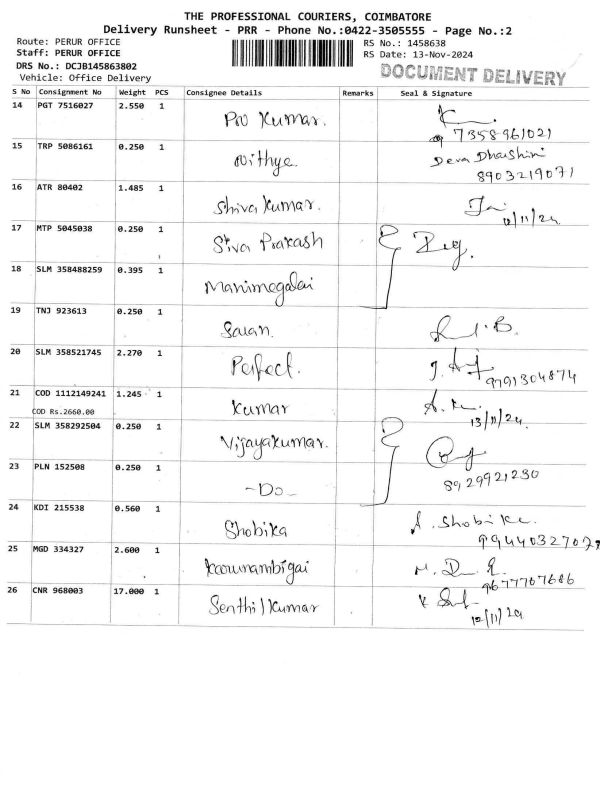 THE PROFESSIONAL COURIERS, COIMBATORE
Delivery Runsheet - PRR - Phone No.:0422-3505555 - Page No.:2
Route: PERUR OFFICE
RS No.: 1458638
Staff: PERUR OFFICE
RS Date: 13-Nov-2024
DRS No.: DCJB145863802
DOCUMENT DELIVERY
Vehicle: Office Delivery
S No Consignment No Weight PCS Consignee Details Remarks Seal & Signature
14 PGT 7516027 2.550 1 Kumar. 7358961021
15 TRP 5086161 0.250 1 Nithya. Deva Dharshini
8903219071
16 ATR 80402 1.485 1 Shiva Kumar.
17 MTP 5045038 0.250 1 Siva Prakash
18 SLM 358488259 0.395 1 Manimegalai
19 TNJ 923613 0.250 1 Saran.
20 SLM 358521745 2.270 1 Perfect. 9791304874
21 COD 1112149241 1.245 1 Kumar
COD Rs.2660.00 13/11/24
22 SLM 358292504 0.250 1 Vijayakumar.
23 PLN 152508 0.250 1 -Do- 8929921230
24 KDI 215538 0.560 1 Shobika A. Shobika
25 MGD 334327 2.600 1 9677767686
26 CNR 968003 17.000 1 Senthilkumar
12/11/24